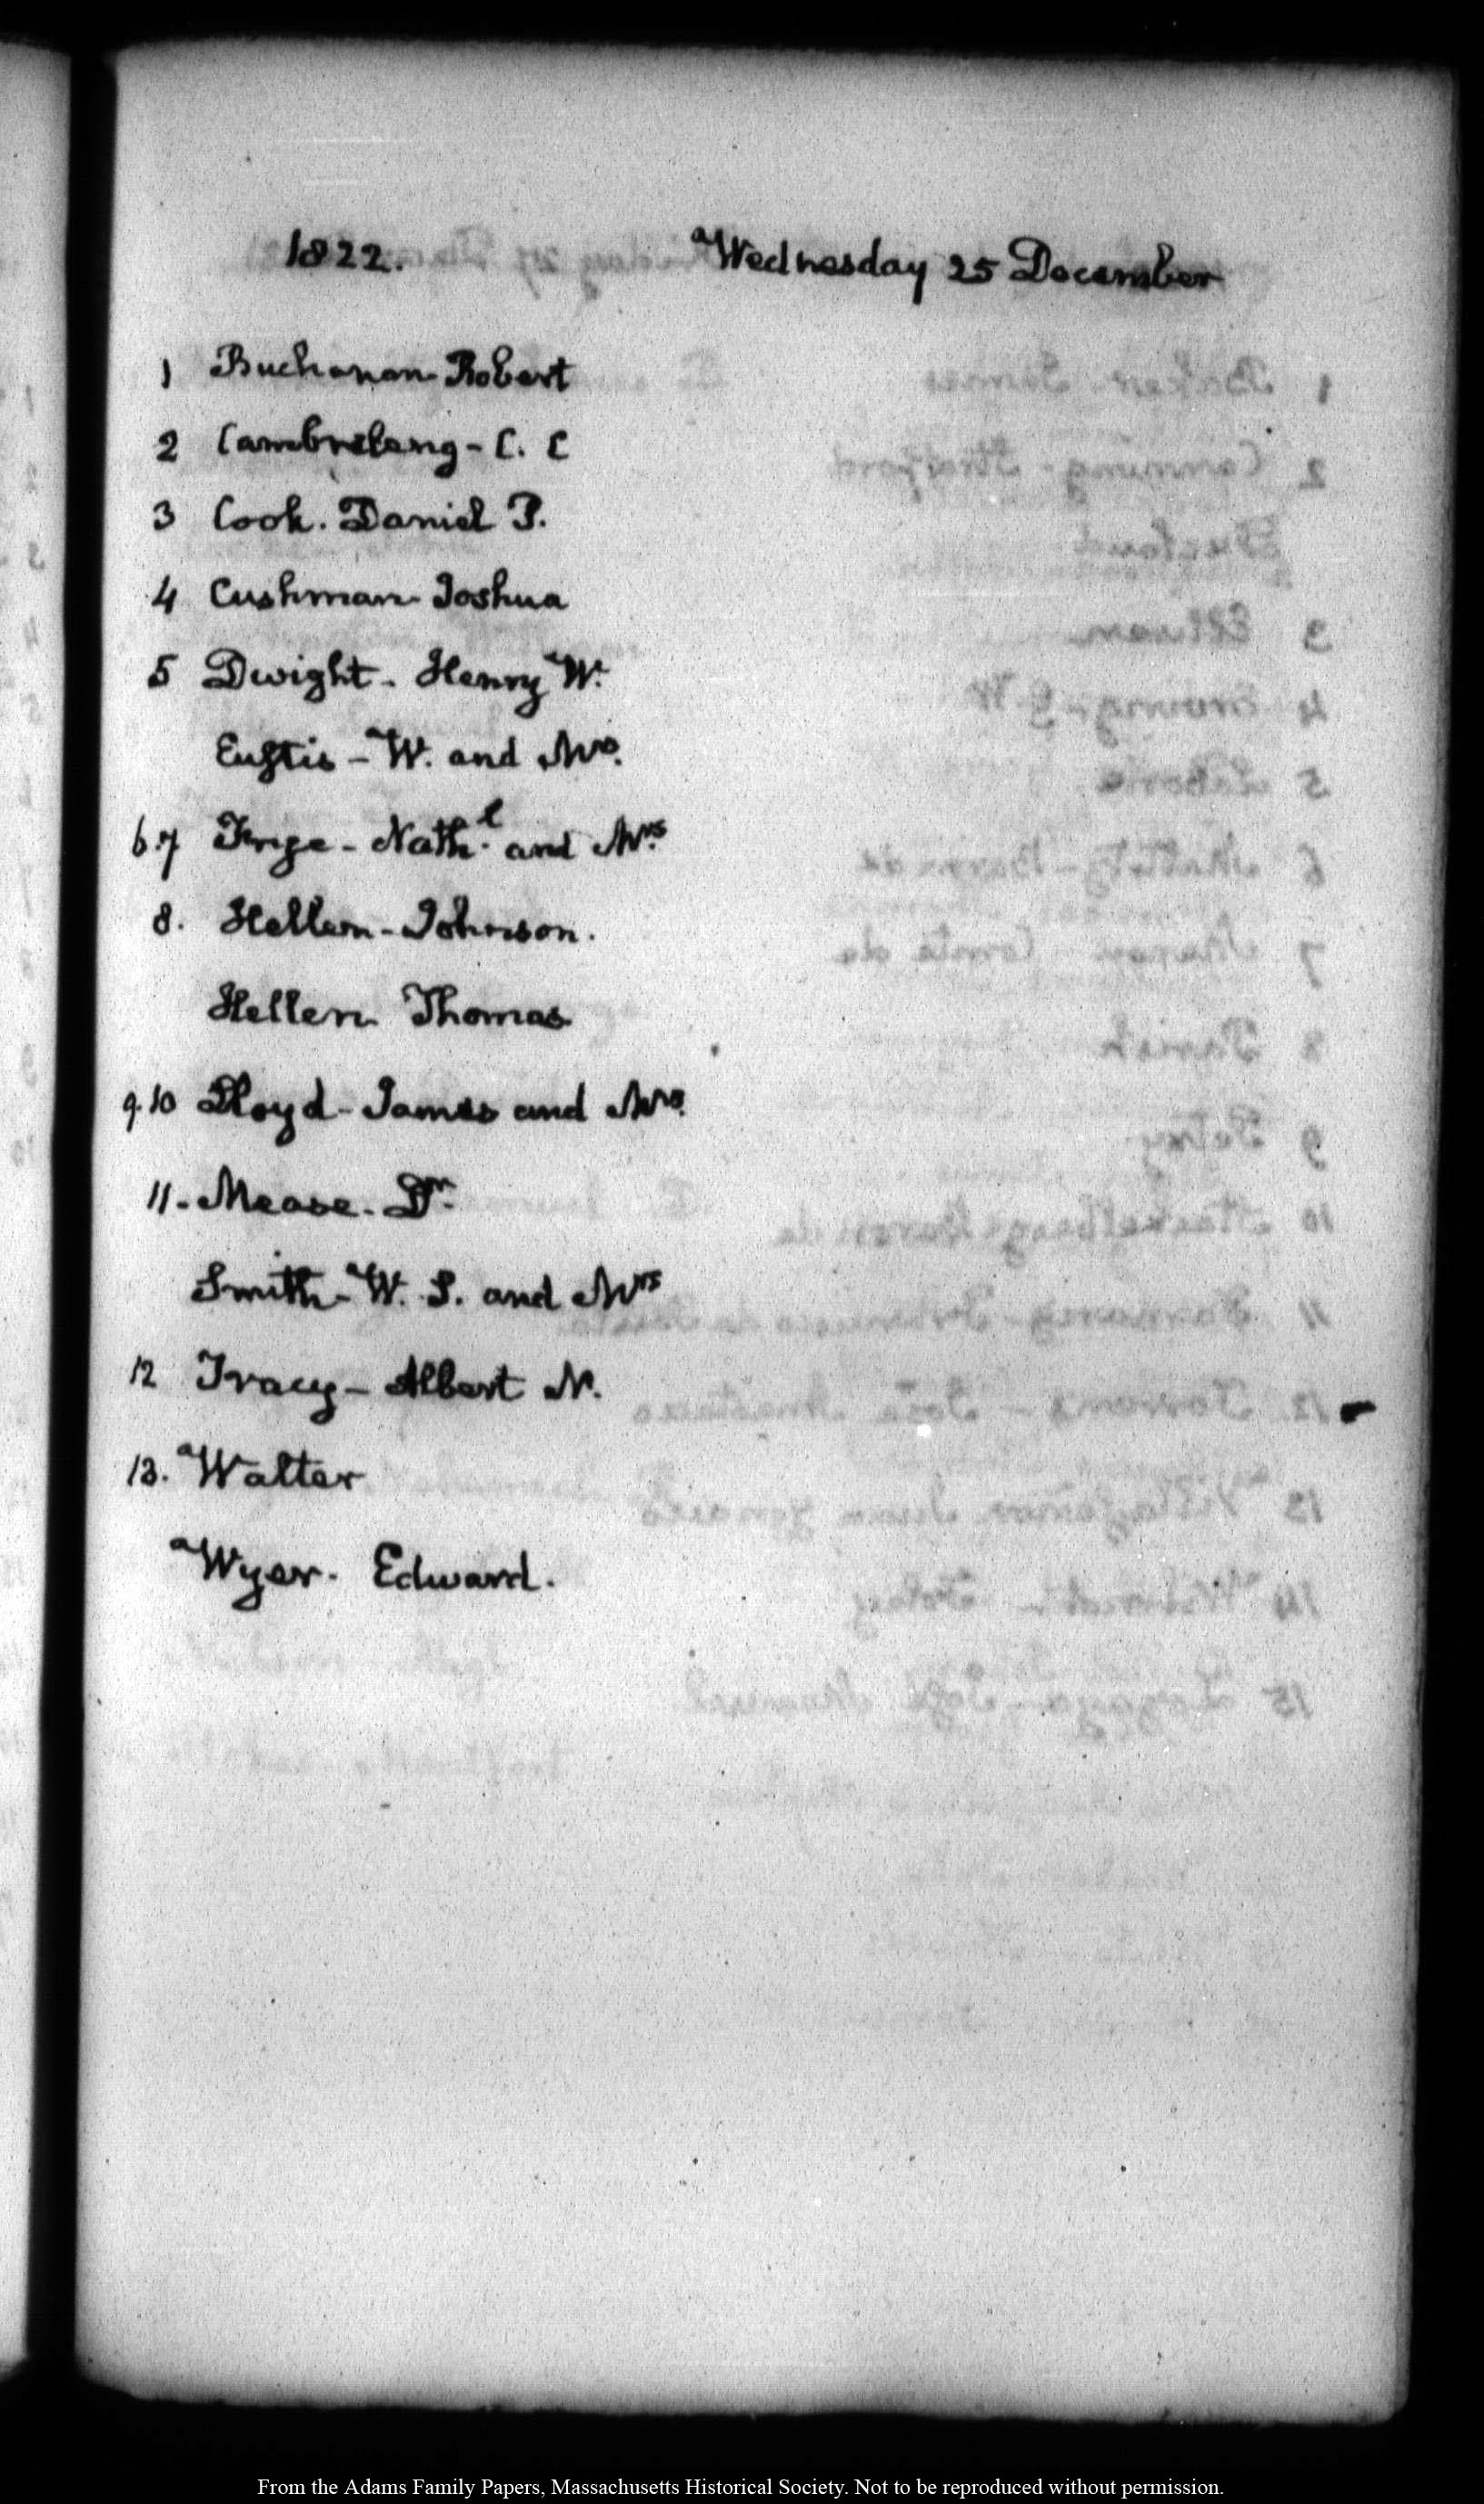 1822. Wednesday 25 December
1 Buchanan Robert
2 Cambreleng - C. C
3 Cook. Daniel P.
4 Cushman Joshua
5 Dwight - Henry W.
Eustis - W. and Mrs.
6.7 Frye - Nathl. and Mrs.
8. Hellen - Johnson.
Hellen Thomas
9.10 Lloyd - James and Mrs.
11 - Mease - Dr.
Smith - W. S. and Mrs
12 Tracy - Albert N.
13. Walter
Wyer. Edward.
From the Adams Family Papers, Massachusetts Historical Society. Not to be reproduced without permission.